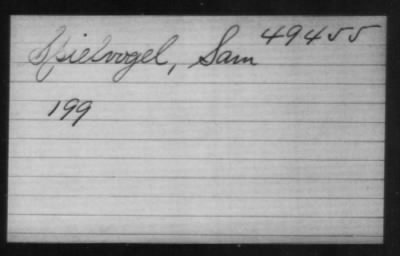 Spielvogel, Sam 49455
199